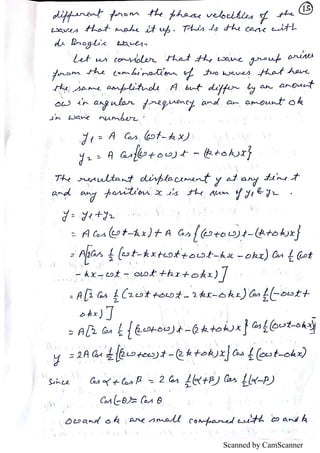 15
different from the phase velocities of the
waves that make it up. This is the case with
de Broglie waves.
Let us consider that the wave group arises
from the combination of two waves that have
the same amplitude A but differ by an amount
△ω in angular frequency and an amount △k
in wave number.
y₁ = A Cos (ωt-kx)
y₂ = A Cos{(ω+△ω)t - (k+△k)x}
The resultant displacement y at any time t
and any position x is the sum of y₁ & y₂.
y = y₁+y₂
= A Cos(ωt-kx)+A Cos{(ω+△ω)t-(k+△k)x}
= A[2Cos ½ (ωt-kx+ωt+△ωt-kx-△kx) Cos ½ (ωt
-kx-ωt-△ωt+kx+△kx)]
= A[2 Cos ½ (2ωt+△ωt-2kx-△kx) Cos ½(-△ωt+
△kx)]
= A[2 Cos ½ {(2ω+△ω)t-(2k+△k)x} Cos ½(△ωt-△kx)]
y = 2A Cos ½[(2ω+△ω)t-(2k+△k)x] Cos ½ (△ωt-△kx)
Since Cos α + Cos β = 2 Cos ½(α+β) Cos ½(α-β)
Cos(-θ) = Cos θ
△ω and △k are small compared with ω and k
Scanned by CamScanner